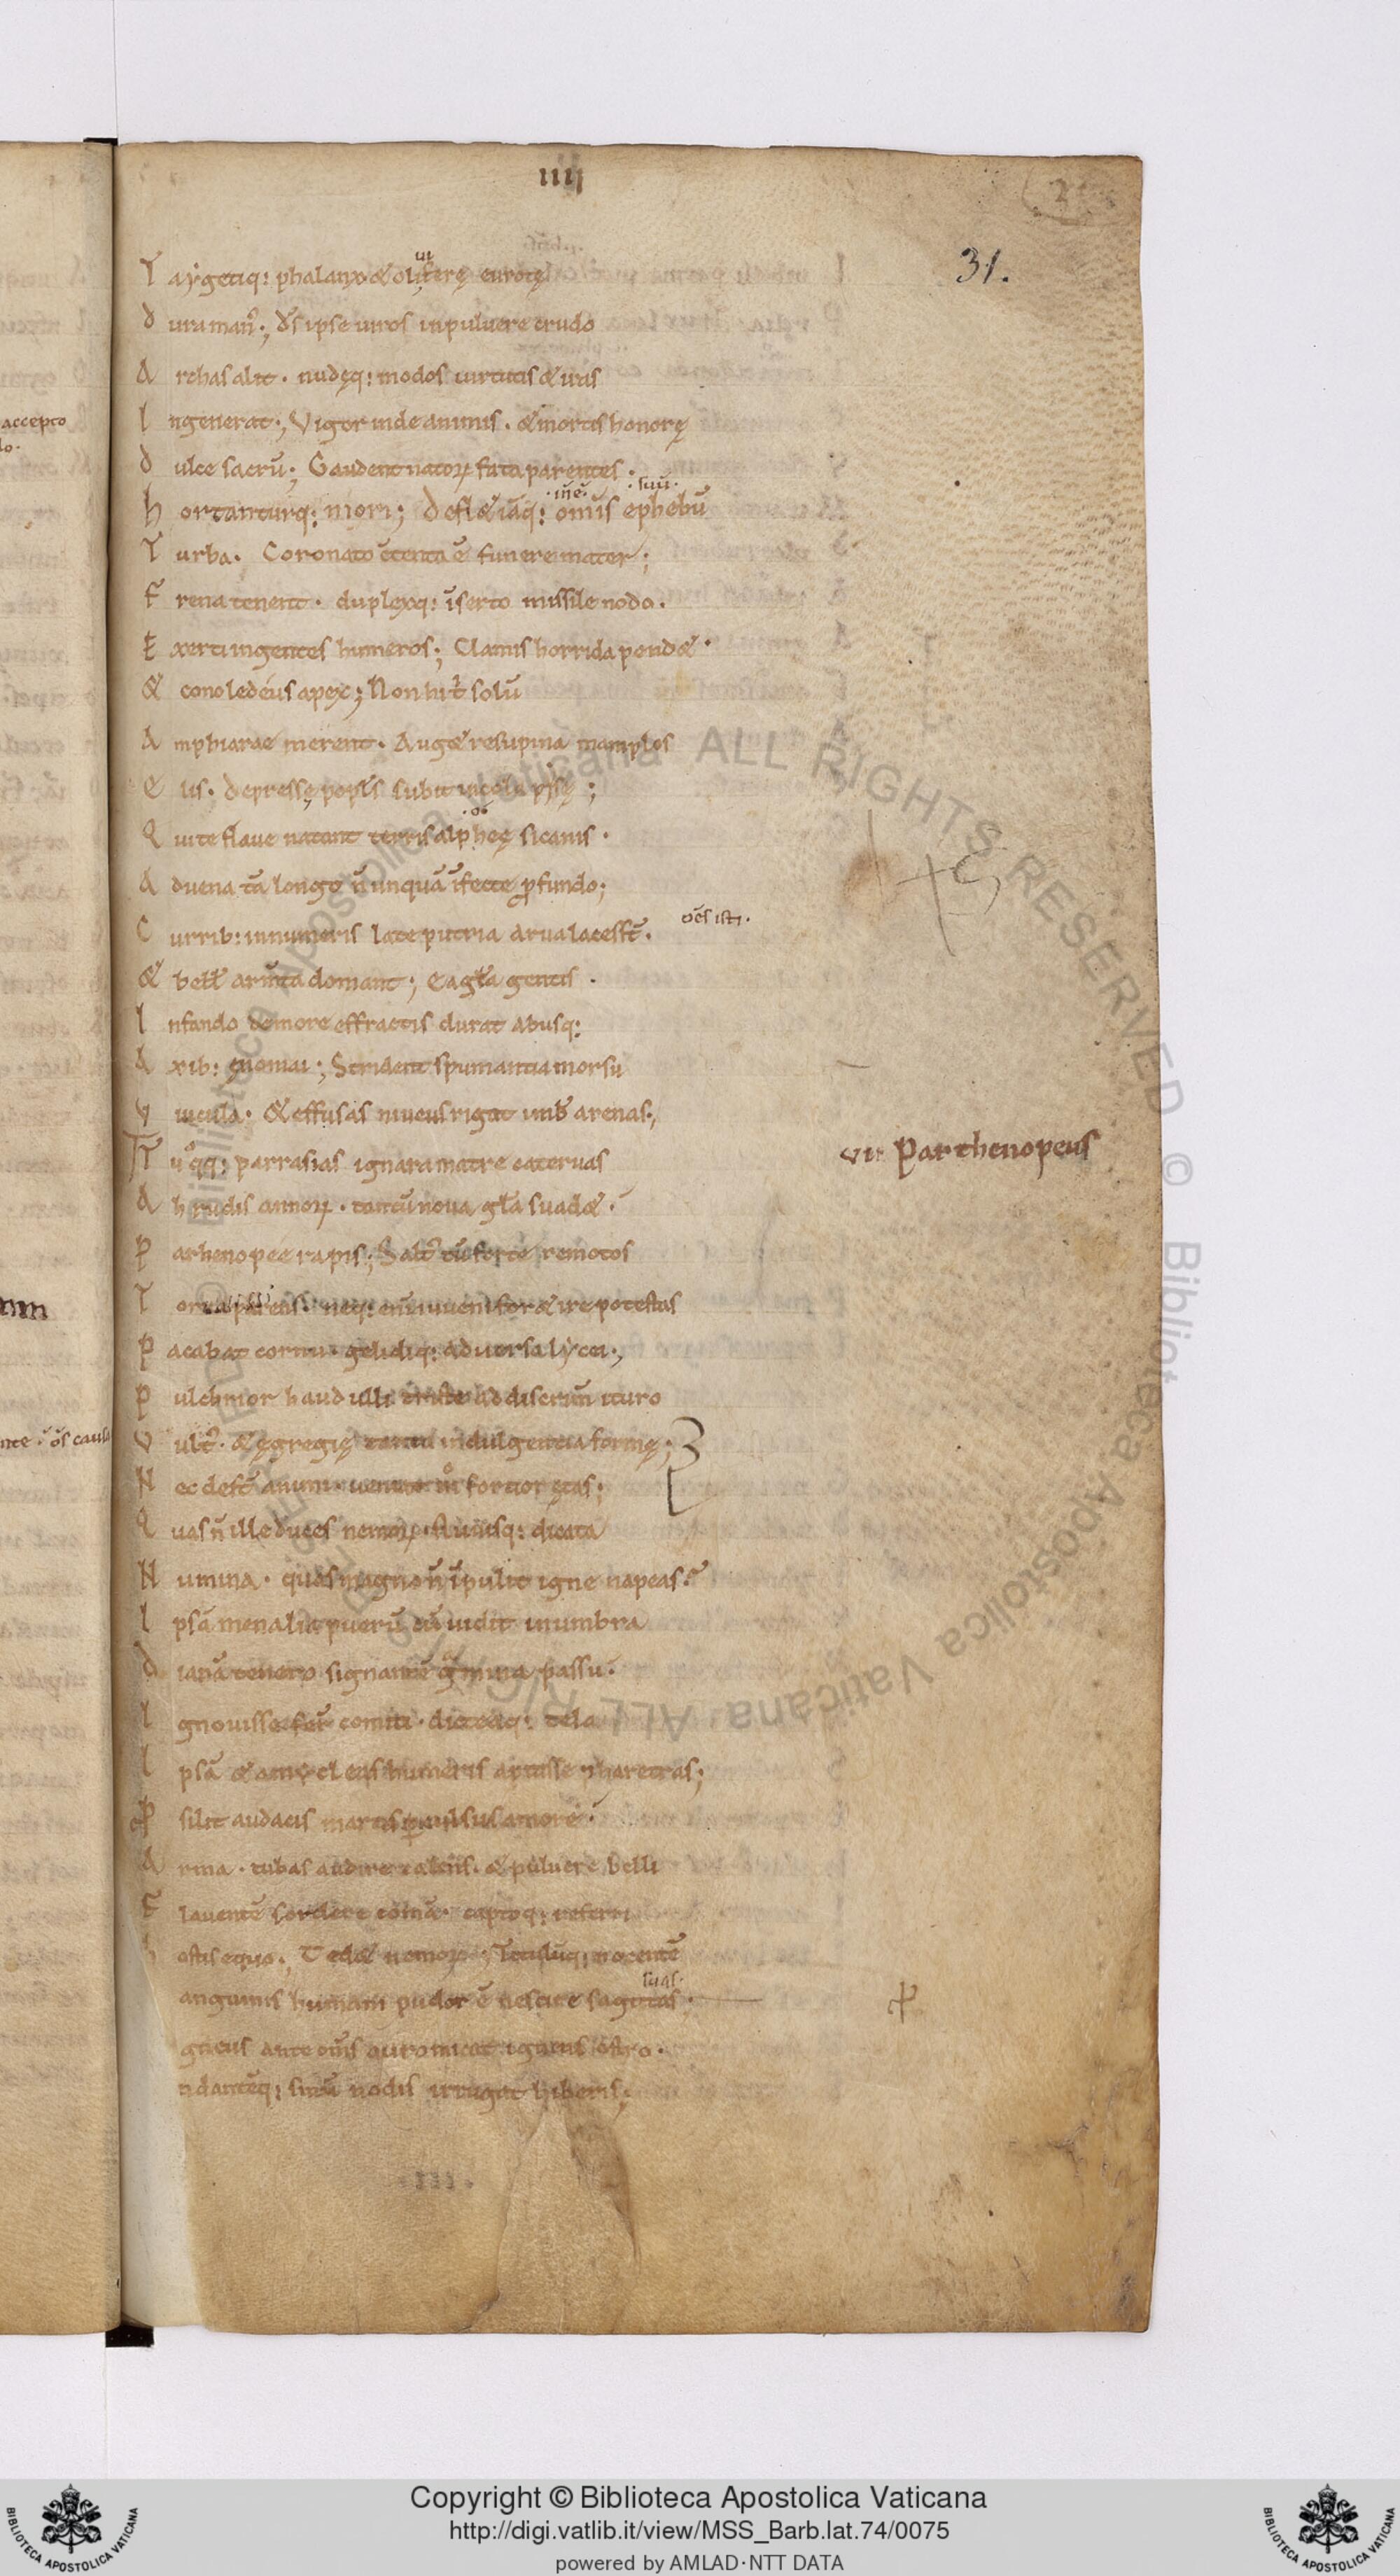 IIII
31.
Taẏgetiq: phalanx & oliferę eurotę
Dura man᷒; d̄s ipse uiros inpuluere crudo
Archas alit. nudęq: modos uirtutis & iras
Ingenerat; Vigor inde animis. & mortis honorę
Dulce sacrū; Gaudent natoꝝ fata parentes.
.iuū.
hortanturq: mori; defl& iāq: om̄s ephebū
Turba. Coronato c̄tenta ē funere mater;
Frena tenent. duplexq: īserto missile nodo.
Exerti ingentes humeros; Clamis horrida pend&.
& cono ledeus apex; Non hi t̄ solū
Amphiarae merent. Auget resupina manıplos
Elis. depressę popl̄s subit incola pisę;
Qui te flaue natant terris alpheę sicanis.
Aduena tā longo n̄ unquā īfecte ꝓfundo;
Currib: innumeris late putria arua lacess̄t.
oēs isti.
& bell̄ arm̄ta domant; Ea gl̄a gentis.
Infando de more effractis durat abusq:
Axib: ęnomai; Strident spumantia morsu
Vincula. & effusas niueus rigat imb̄ arenas;
Tu qͦq; parrasias ignara matre cateruas
vii Parthenopeus
Ah rudis annoꝝ. tantū noua gl̄a suad&.
Parhenopee rapis; Salt᷒ tū forte remotos
Torua parens. neq: enī iuueni for& ire potestas
Pacabat cornu. gelidiq: aduersa lycei;
Pulchrior haud illi triste ad discrim̄ ituro
Vult᷒. & ęgregię tanta indulgentia formę;
Nec des̄t animi. ueniat mͦ fortior ętas;
Quas n̄ ille duces nemoꝝ. fluuiisq: dicata
Numina. quas magno n̄ īpulit igne napeas.
Ipsā menalia puerū cū uidit in umbra
Dianā tenero signantē gͣmina passu.
Ignouisse fer̄t comiti. dicteaq: tela
Ipsā & amycleas humeris aptasse pharetras;
Prosilit audacis martis ꝑculsus amore.
Arma. tubas audire calens. & puluere belli
Flauentē sordere comā. captoq: referri
hostis equo; Ted& nemoꝝ; Titulūq: nocentē
suas.
anguinis humani pudor ē nescire sagittas;
gneus ante om̄s auro micat igneus ostro.
ndantēq: sinū nodis irrugat hiberis;
.III.
Copyright © Biblioteca Apostolica Vaticana
http://digi.vatlib.it/view/MSS_Barb.lat.74/0075
powered by AMLAD·NTT DATA